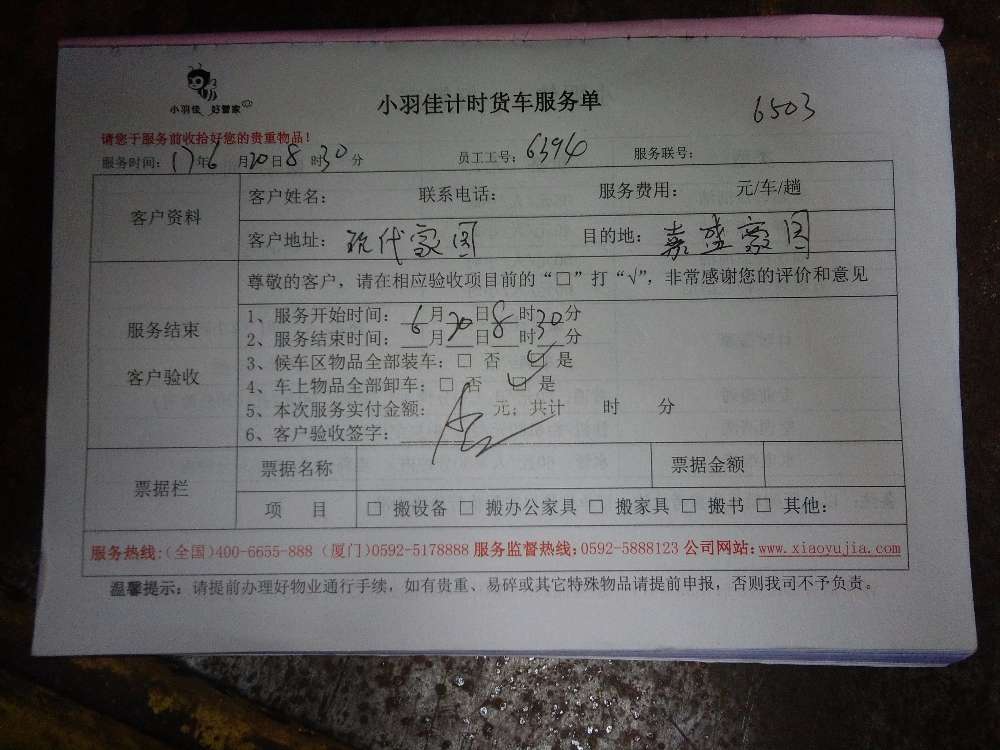 小羽佳 好管家
小羽佳计时货车服务单
6503
请您于服务前收拾好您的贵重物品！
服务时间：17年6月30日8时30分 员工工号：6394 服务联号：
客户资料
客户姓名： 联系电话： 服务费用： 元/车/趟
客户地址：现代豪园 目的地：嘉盛豪园
服务结束
客户验收
尊敬的客户，请在相应验收项目前的“□”打“√”，非常感谢您的评价和意见
1、服务开始时间：6月30日8时30分
2、服务结束时间：__月__日__时__分
3、候车区物品全部装车：□ 否 ☑ 是
4、车上物品全部卸车：□ 否 ☑ 是
5、本次服务实付金额： 元；共计 时 分
6、客户验收签字：
票据栏
票据名称 票据金额
项 目 □ 搬设备 □ 搬办公家具 □ 搬家具 □ 搬书 □ 其他：
服务热线：(全国)400-6655-888 (厦门)0592-5178888 服务监督热线：0592-5888123 公司网站：www.xiaoyujia.com
温馨提示：请提前办理好物业通行手续，如有贵重、易碎或其它特殊物品请提前申报，否则我司不予负责。